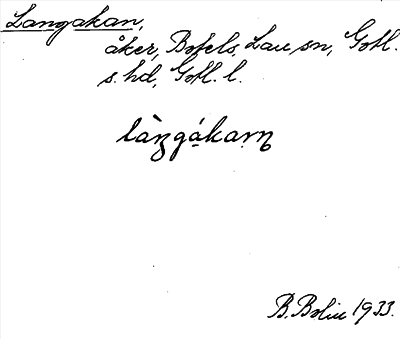 Langakan,
åker, Botels, Lau sn, Gotl.
s. hd, Gotl. l.
làŋgákarn
B. Bolin 1933.